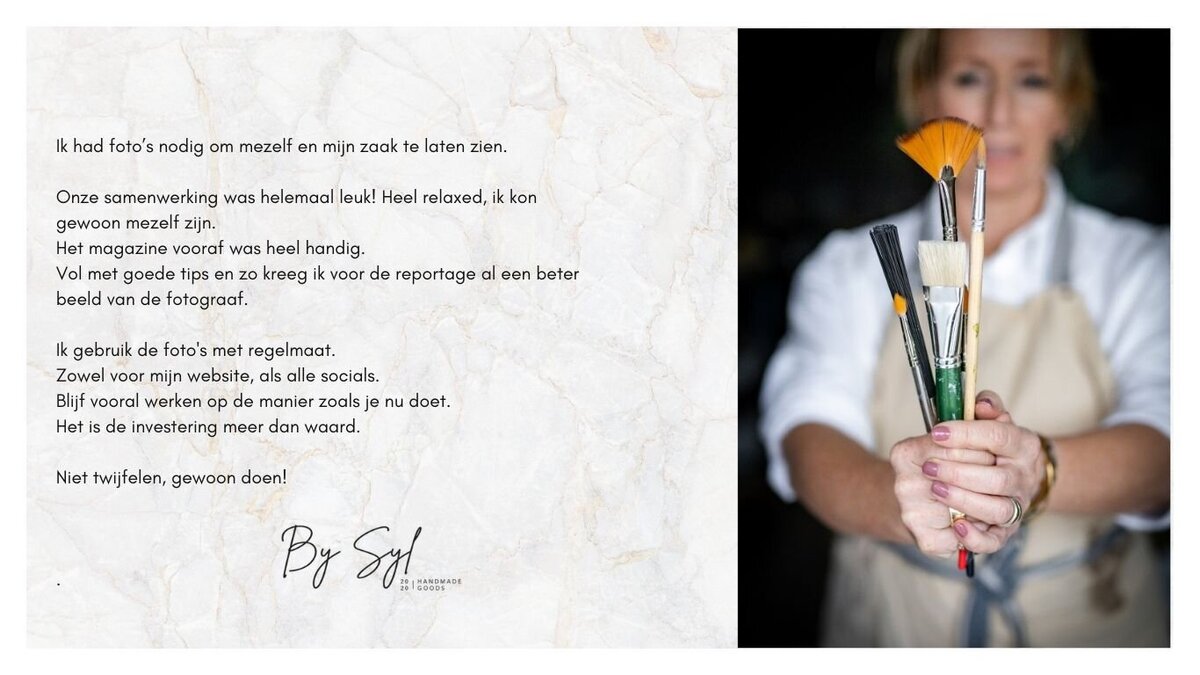 Ik had foto’s nodig om mezelf en mijn zaak te laten zien.
Onze samenwerking was helemaal leuk! Heel relaxed, ik kon
gewoon mezelf zijn.
Het magazine vooraf was heel handig.
Vol met goede tips en zo kreeg ik voor de reportage al een beter
beeld van de fotograaf.
Ik gebruik de foto's met regelmaat.
Zowel voor mijn website, als alle socials.
Blijf vooral werken op de manier zoals je nu doet.
Het is de investering meer dan waard.
Niet twijfelen, gewoon doen!
By Syl
20 | HANDMADE
20 | GOODS
.